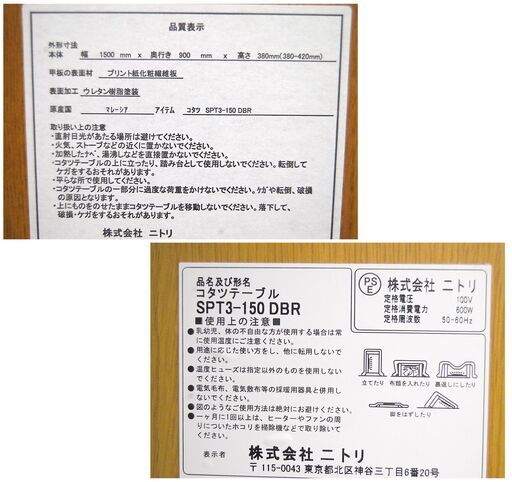 品質表示
外形寸法
本体 幅 1500 mm x 奥行き 900 mm x 高さ 380mm(380-420mm)
甲板の表面材 プリント紙化粧繊維板
表面加工 ウレタン樹脂塗装
原産国 マレーシア アイテム コタツ SPT3-150 DBR
取り扱い上の注意
・直射日光があたる場所は避けてください。
・火気、ストーブなどの近くに置かないでください。
・加熱したナベ、湯沸しなどを直接置かないでください。
・コタツテーブルの上に立ったり、踏み台として使用しないでください。転倒して
ケガをするおそれがあります。
・平らな所で使用してください。
・コタツテーブルの一部分に過度な荷重をかけないでください。ケガや転倒、破損
の原因となります。
・上にものをのせたままコタツテーブルを移動しないでください。落下して、
破損・ケガをするおそれがあります。
株式会社 ニトリ
品名及び形名
コタツテーブル
SPT3-150 DBR
■使用上の注意■
●乳幼児、体の不自由な方が使用する場合は常
に使用温度にご注意ください。
●用途に応じた使い方をし、他に転用しないで
ください。
●温度ヒューズは指定以外のものを使用しない
でください。
●電気毛布、電気敷布等の採暖用器具と併用し
ないでください。
●図のようなご使用方法は絶対にお避けください。
●一ヶ月に1回以上は、ヒーターやファンの周
りについたホコリを掃除機などで取り除いて
ください。
PSE
株式会社 ニトリ
定格電圧 100V
定格消費電力 600W
定格周波数 50-60Hz
立てたり 布類を入れたり 裏返しにしたり
脚をはずしたり
表示者 株式会社 ニトリ
〒115-0043 東京都北区神谷三丁目6番20号